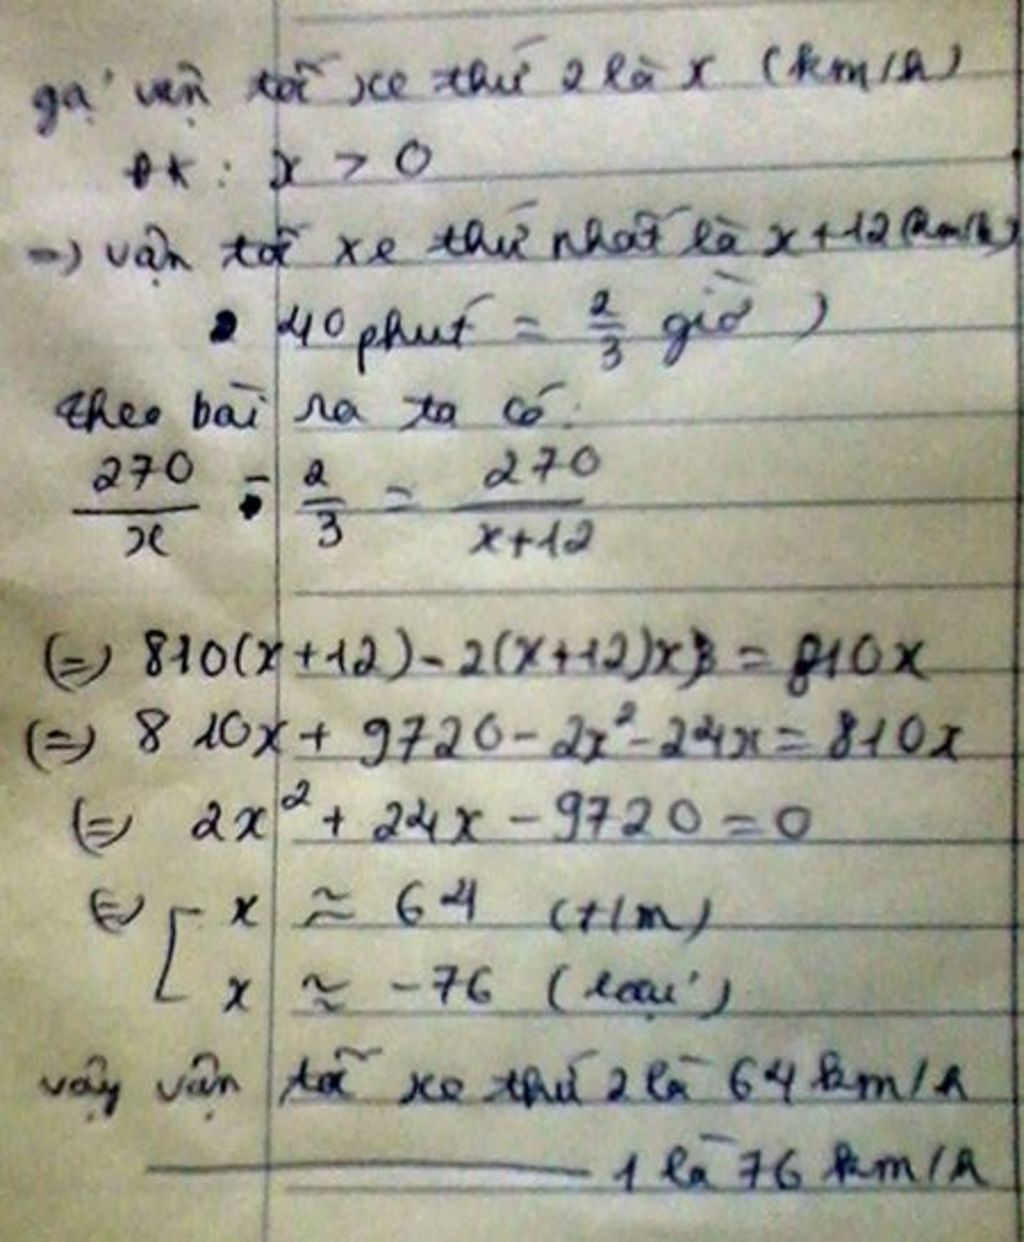 gọi vận tốc xe thứ 2 là x (km/h)
ĐK: x > 0
=) vận tốc xe thứ nhất là x+12 (km/h)
40 phút = 2/3 giờ )
theo bài ra ta có:
270/x - 2/3 = 270/x+12
(=) 810(x+12) - 2(x+12)x = 810x
(=) 810x + 9720 - 2x² - 24x = 810x
(=) 2x² + 24x - 9720 = 0
(=) [ x ≈ 64 (t/m)
x ≈ -76 (loại)
vậy vận tốc xe thứ 2 là 64 km/h
———— 1 là 76 km/h